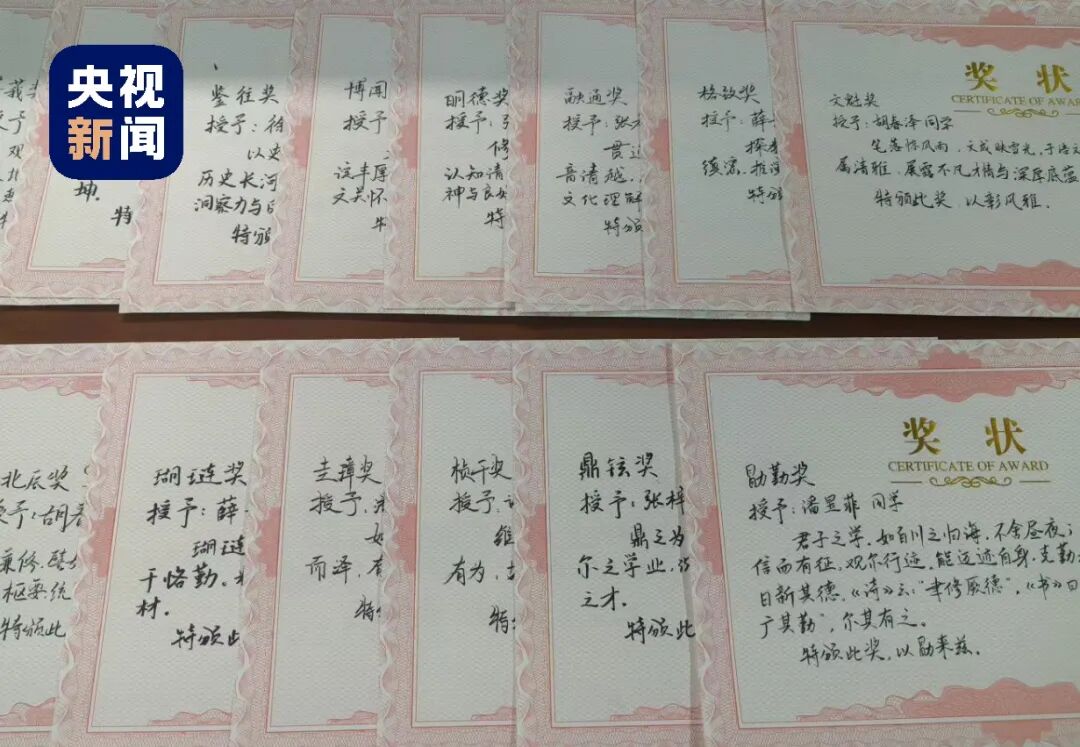 央视
新闻
鉴往奖
授予:徐
以史
历史长河
洞察力与
特颁
坤.
特
博闻
授予
淀丰厚
文关怀
特
明德奖
授予:
修
认知请
神与良
特
融通奖
授予:张
贯
音请越
文化理解
特颁
格致奖
授予:薛
探
缜密.推
特颁
奖 状
CERTIFICATE OF AWARD
文魁奖
授予:胡春泽同学
笔落惊风雨,文成映雪光,于语文
属清雅,屡露不凡才情与深厚底蕴
特颁此奖,以彰风雅.
北辰奖
授予:胡春
枢要统
特颁此
瑚琏奖
授予:薛
瑚琏
干恪勤.
材.
特颁此
圭璋奖
授予,
如
而泽,
特
桢干奖
授予:
维
有为,
特
鼎铉奖
授予:张梓
鼎之为
尔之学业,
之才.
特颁此
奖 状
CERTIFICATE OF AWARD
勖勤奖
授予:潘昱菲 同学
君子之学,如百川之归海,不舍昼夜;
信而有征,观尔行迹,能迈迹自身,克勤
日新其德.《诗》云:“聿修厥德”,《书》曰
广其勤”,尔其有之.
特颁此奖,以勖来兹.